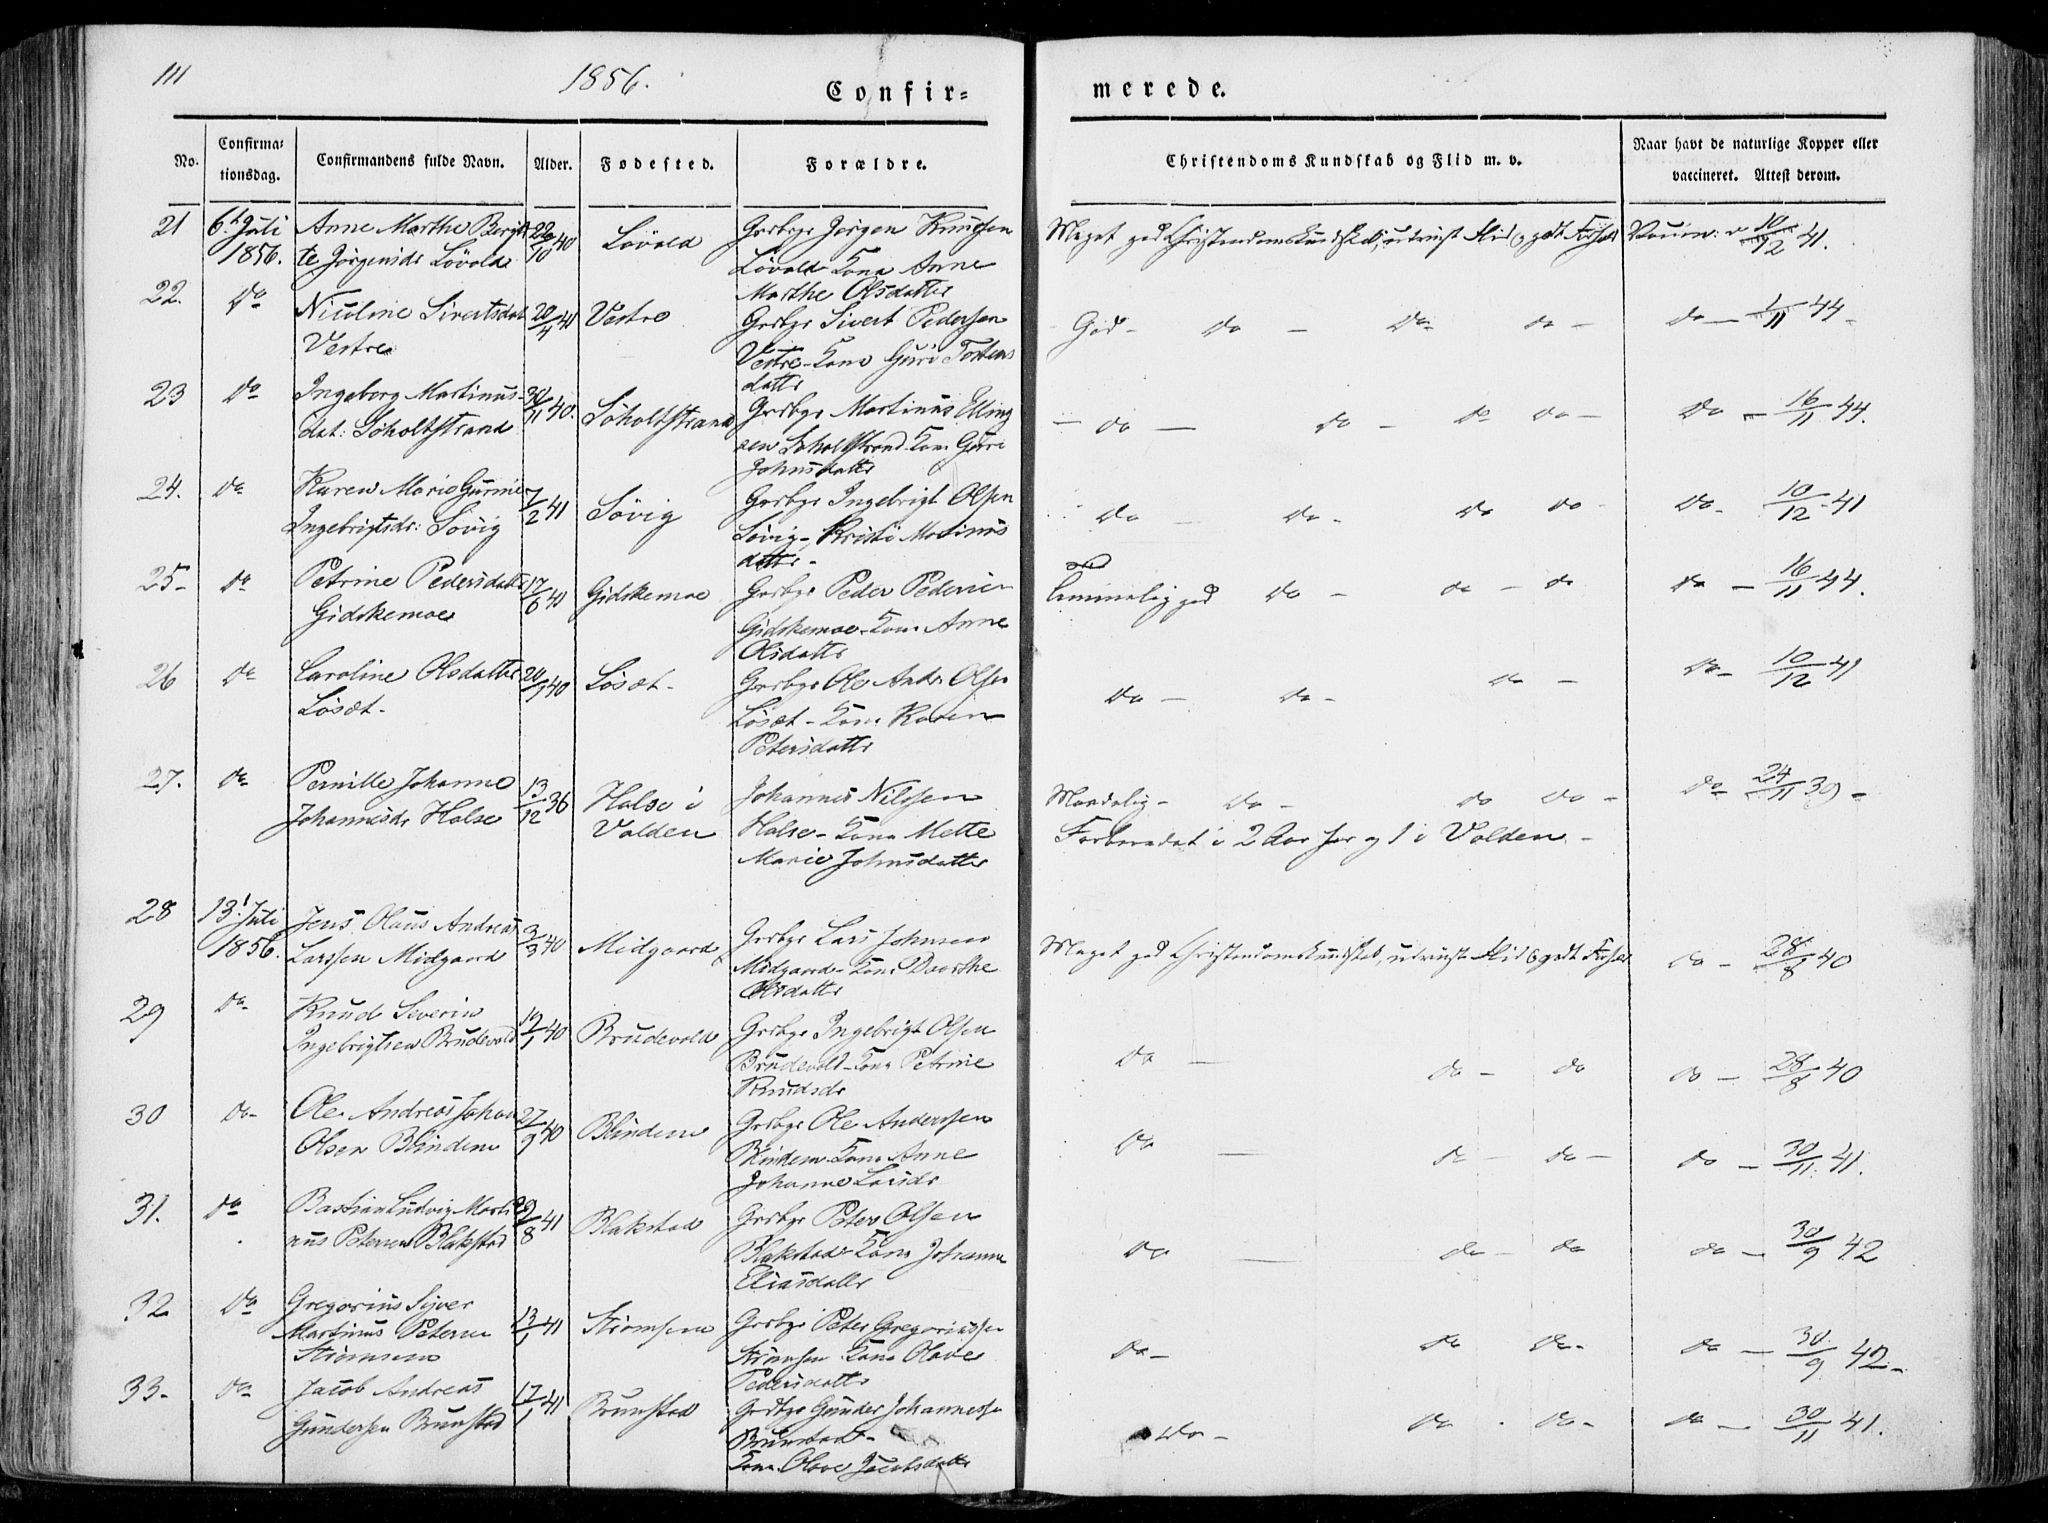 111
1856.
Confir=
merede.
No.
Confirma=
tionsdag.
Confirmandens fulde Navn.
Alder.
Fødested.
Forældre.
Christendoms Kundskab og Flid m. v.
Naar havt de naturlige Kopper eller
vaccineret. Attest derom.
21 6t Juli Anne Marthe Bergit 22/10 40 Lövold Grdbgr Jørgen Knudsen Meget god Christendomskundskab, udviist Flid og godt Forhold Vaccin: 10/12 41.
1856. te Jørgensdr Lövold Lövold Kone Anne
Marthe Olsdatter
22. Do Nicoline Sivertsdat 20/4 41 Vestre Grdbgr Sivert Pedersen God - Do - Do - do - do - 1/11 44 -
Vestre Vestre - Kone Guri Tostens
datter
23 Do Ingeborg Martinus- 30/11 40. Søholtstrand Grdbgr Martinus Elling - do - do - do do - Do - 16/11 44.
dat: Søholtstrand sen Søholtstrand Kone Guri
Johnsdatter
24. Do Karen Marie Gurine 7/2 41 Sövig Grdbgr Ingebrigt Olsen do do - do do - Do - 10/12 - 41
Ingebrigtsdr: Sövig Sövig - Kristi Martinus
datter -
25 - Do Petrine Pedersdatter 17/6 41 Gidskemoe Grdbgr Peder Pedersen temmelig god do - do - do do - 16/11 44.
Gidskemoe Gidskemoe - Kone Anne
Olsdatter
26 Do Caroline Olsdatter 20/9 40 Løsæt - Grdbgr Ole Andr. Olsen do - do - do - do - 10/12 41
Løsæt - Løsæt - Kone Karen
Petersdatter
27. do Pernille Johanne 13/12 36 Halse i Johannes Nilssen Maadelig - do - do do - do 24/11 39 -
Johannesdr Halse Volden Halse - Kone Mette Forberedet i 2 Aar her og 1 i Volden -
Marie Johnsdatter
28 13t Juli Jens Olaus Andreas 3/3 40 Midgaard Grdbgr Lars Johnsen Meget god Christendomskundskab, udviist Flid & godt Forhold do - 28/8 40
1856. Larssen Midgaard Midgaard - Kone Dorthe
Olsdatter
29 Do Knud Severin 19/1 40 Brudevold Grdbgr Ingebrigt Olsen Do - do - do do - 28/8 40
Ingebrigtsen Brudevold Brudevold - Kone Petrine
Knudsdr
30 Do - Ole Andreas Johan 27/9 40 Blindem Grdbgr Ole Anderssen Do - do - do - do - 30/11 41.
Olsen Blindem Blindem Kone Anne
Johanne Larsdr
31. Do Bastian Ludvig Marti 29/8 41 Blakstad Grdbgr Peter Olsen Do do - do do - 30/9 42
nus Petersen Blakstad Blakstad Kone Johanne
Eliasdatter
32 Do Gregorius Siver 13/1 41 Strømsem Grdbgr Peter Gregoriussen Do - do do - do - 30/9 42 -
Martinus Petersen Strømsem Kone Olave
Strømsem Pedersdatter
33 - Do Jacob Andreas 17/1 41 Brunstad Grdbgr Gunder Johannessen Do - do do - do - 30/11 41.
Gundersen Brunstad Brunstad -
Kone Olave Jacobsdatter